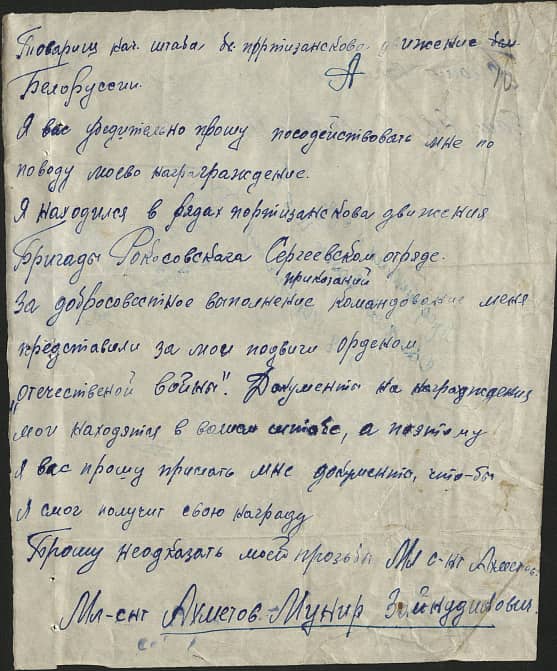 Товарищ нач. штаба бе. портизанскова движение
Белоруссии.
Я вас убедительно прошу посодействовать мне по
поводу моево награграждение.
Я находился в рядах портизанскова движения
Бригады Рокосовскага Сергеевском отряде.
приказаний
За добросовестное выполнение командование меня
представили за мои подвиги орденом
"отечественой войны". Документы на награждения
мои находятся в вашом штабе, а поэтому
я вас прошу прислать мне документы, что-бы
я смог получит свою награду
Прошу неодказать моей прозьбы Мл с-нт Ахметов.
Мл-снт Ахметов Мунир Зайнудинович.